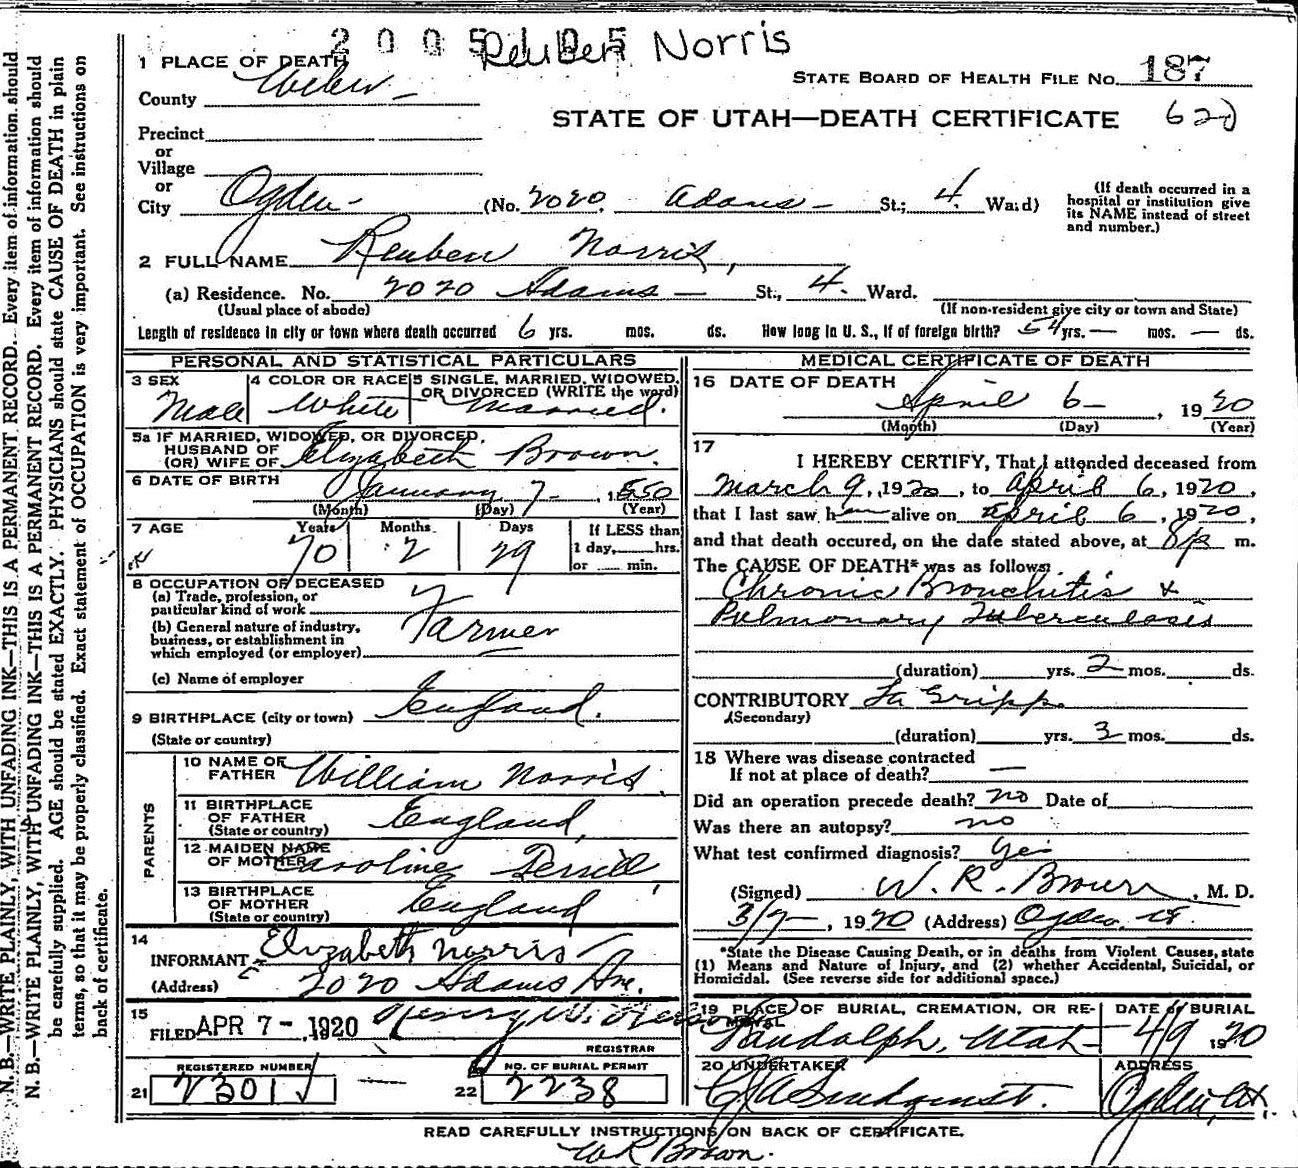 2005
Reuben Norris
1 PLACE OF DEATH
STATE BOARD OF HEALTH FILE NO. 187
County Weber
STATE OF UTAH—DEATH CERTIFICATE 620
Precinct
or
Village
or
City Ogden (No. 2020 Adams St.; 4. Ward)
(If death occurred in a hospital or institution give its NAME instead of street and number.)
2 FULL NAME Reuben Norris,
(a) Residence. No. 2020 Adams St., 4. Ward.
(Usual place of abode) (If non-resident give city or town and State)
Length of residence in city or town where death occurred 6 yrs. mos. ds. How long in U. S., if of foreign birth? 54 yrs. — mos. — ds.
PERSONAL AND STATISTICAL PARTICULARS
3 SEX Male
4 COLOR OR RACE White
5 SINGLE, MARRIED, WIDOWED, OR DIVORCED (WRITE the word) Married.
5a IF MARRIED, WIDOWED, OR DIVORCED,
HUSBAND OF
(OR) WIFE OF Elizabeth Brown.
6 DATE OF BIRTH January 7 - 1850
(Month) (Day) (Year)
7 AGE Years 70 Months 2 Days 29
If LESS than
1 day, hrs.
or min.
8 OCCUPATION OF DECEASED
(a) Trade, profession, or
particular kind of work
Farmer
(b) General nature of industry,
business, or establishment in
which employed (or employer)
(c) Name of employer
9 BIRTHPLACE (city or town) England.
(State or country)
PARENTS
10 NAME OF
FATHER William Norris.
11 BIRTHPLACE
OF FATHER England,
(State or country)
12 MAIDEN NAME
OF MOTHER Caroline
13 BIRTHPLACE
OF MOTHER England
(State or country)
14
INFORMANT Elizabeth Norris
(Address) 2020 Adams Ave.
15
FILED APR 7 - 1920 Henry W.
REGISTRAR
REGISTERED NUMBER
21 2301
NO. OF BURIAL PERMIT
22 2238
MEDICAL CERTIFICATE OF DEATH
16 DATE OF DEATH
April 6 - , 1920
(Month) (Day) (Year)
17
I HEREBY CERTIFY, That I attended deceased from
March 9, 1920, to April 6, 1920,
that I last saw him alive on April 6, 1920,
and that death occured, on the date stated above, at 8 p m.
The CAUSE OF DEATH* was as follows:
Chronic Bronchitis &
Pulmonary Tuberculosis
(duration) yrs. 2 mos. ds.
CONTRIBUTORY La Grippe
(Secondary)
(duration) yrs. 3 mos. ds.
18 Where was disease contracted
If not at place of death? —
Did an operation precede death? no Date of
Was there an autopsy? no
What test confirmed diagnosis? yes
(Signed) W. R. Brown, M. D.
3/7 - , 1920 (Address) Ogden Ut.
*State the Disease Causing Death, or in deaths from Violent Causes, state
(1) Means and Nature of Injury, and (2) whether Accidental, Suicidal, or
Homicidal. (See reverse side for additional space.)
19 PLACE OF BURIAL, CREMATION, OR REMOVAL
Randolph, Utah
DATE of BURIAL
4/9 1920
20 UNDERTAKER
ADDRESS
Ogden, Ut.
READ CAREFULLY INSTRUCTIONS ON BACK OF CERTIFICATE.
W R Brown.
N. B.—WRITE PLAINLY, WITH UNFADING INK—THIS IS A PERMANENT RECORD. Every item of information should
N. B.—WRITE PLAINLY, WITH UNFADING INK—THIS IS A PERMANENT RECORD. Every item of information should
be carefully supplied. AGE should be stated EXACTLY. PHYSICIANS should state CAUSE OF DEATH in plain
terms, so that it may be properly classified. Exact statement of OCCUPATION is very important. See instructions on
back of certificate.